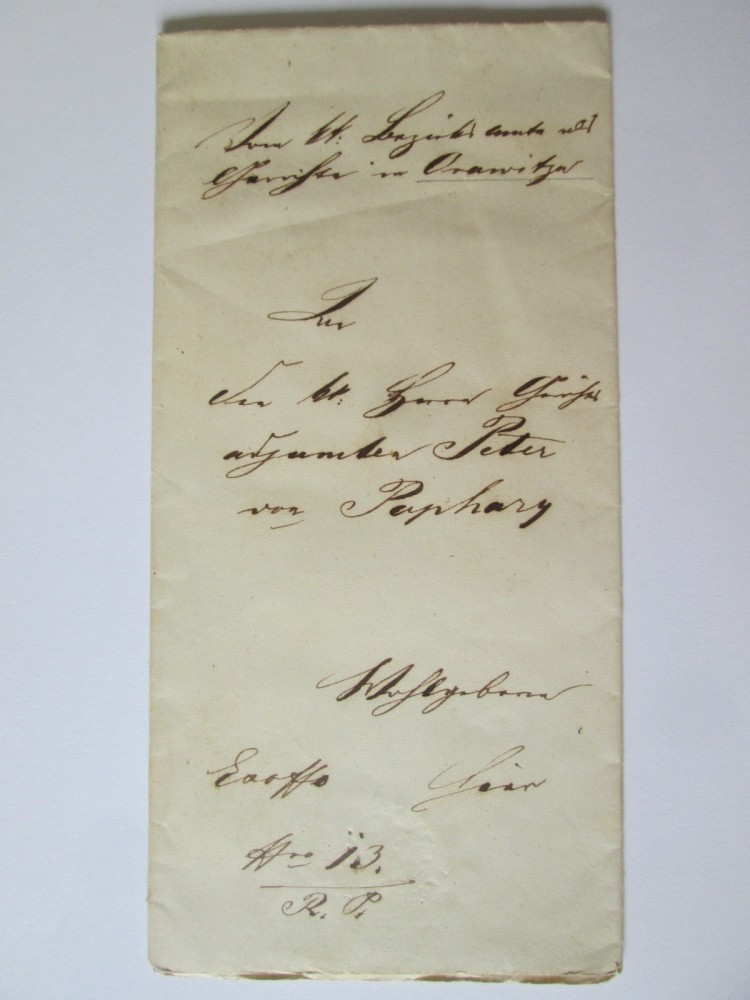 Vom kk: Bezirksamte als
Gerichte in Orawitza
An
den kk: Herrn Gerichts
adjuncten Peter
von Paphary
Wohlgeboren
Exoffo hier
Nro 13.
R. P.